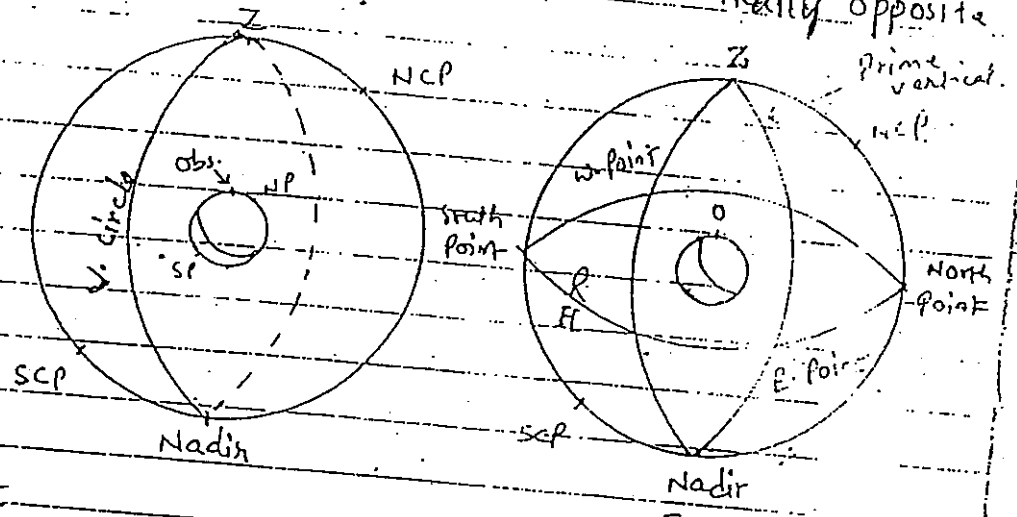 opposite
Z
NCP
Obs.
NP
V. Circle
SP
SCP
Nadir
Z
Prime
vertical.
NCP.
W-Point
South
Point
O
North
Point
R
H
E. Point
SCP
Nadir